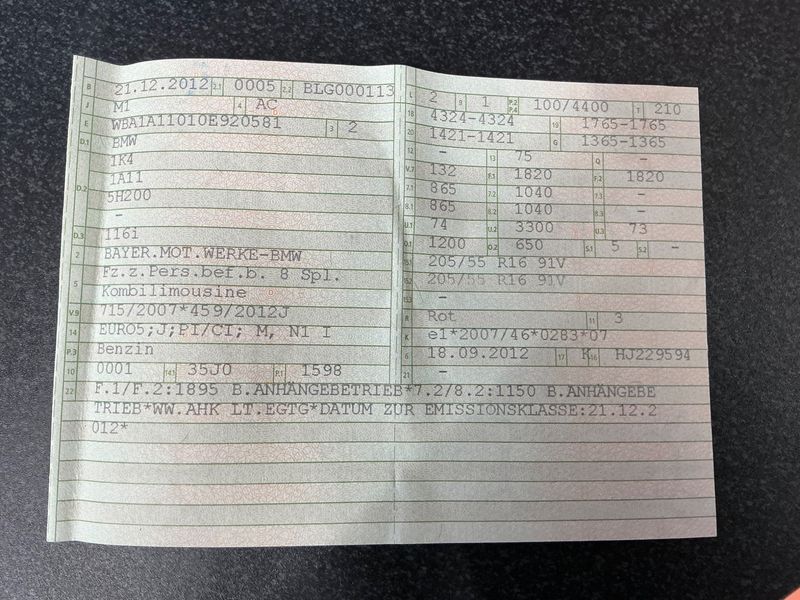 B 21.12.2012 2.1 0005 2.2 BLG000113
J M1 4 AC
E WBA1A11010E920581 3 2
D.1 BMW
1K4
D.2 1A11
5H200
–
D.3 116i
2 BAYER.MOT.WERKE-BMW
5 Fz.z.Pers.bef.b. 8 Spl.
Kombilimousine
V.9 715/2007*459/2012J
14 EURO5;J;PI/CI; M, N1 I
P.3 Benzin
10 0001 14.1 35J0 P.1 1598
L 2 9 1 P.2 P.4 100/4400 T 210
18 4324-4324 19 1765-1765
20 1421-1421 G 1365-1365
12 – 13 75 Q –
V.7 132 F.1 1820 F.2 1820
7.1 865 7.2 1040 7.3 –
8.1 865 8.2 1040 8.3 –
U.1 74 U.2 3300 U.3 73
O.1 1200 O.2 650 S.1 5 S.2 –
15.1 205/55 R16 91V
15.2 205/55 R16 91V
–
R Rot 11 3
K e1*2007/46*0283*07
6 18.09.2012 17 K 16 HJ229594
21 –
22 F.1/F.2:1895 B.ANHÄNGEBETRIEB*7.2/8.2:1150 B.ANHÄNGEBE
TRIEB*WW.AHK LT.EGTG*DATUM ZUR EMISSIONSKLASSE:21.12.2
012*